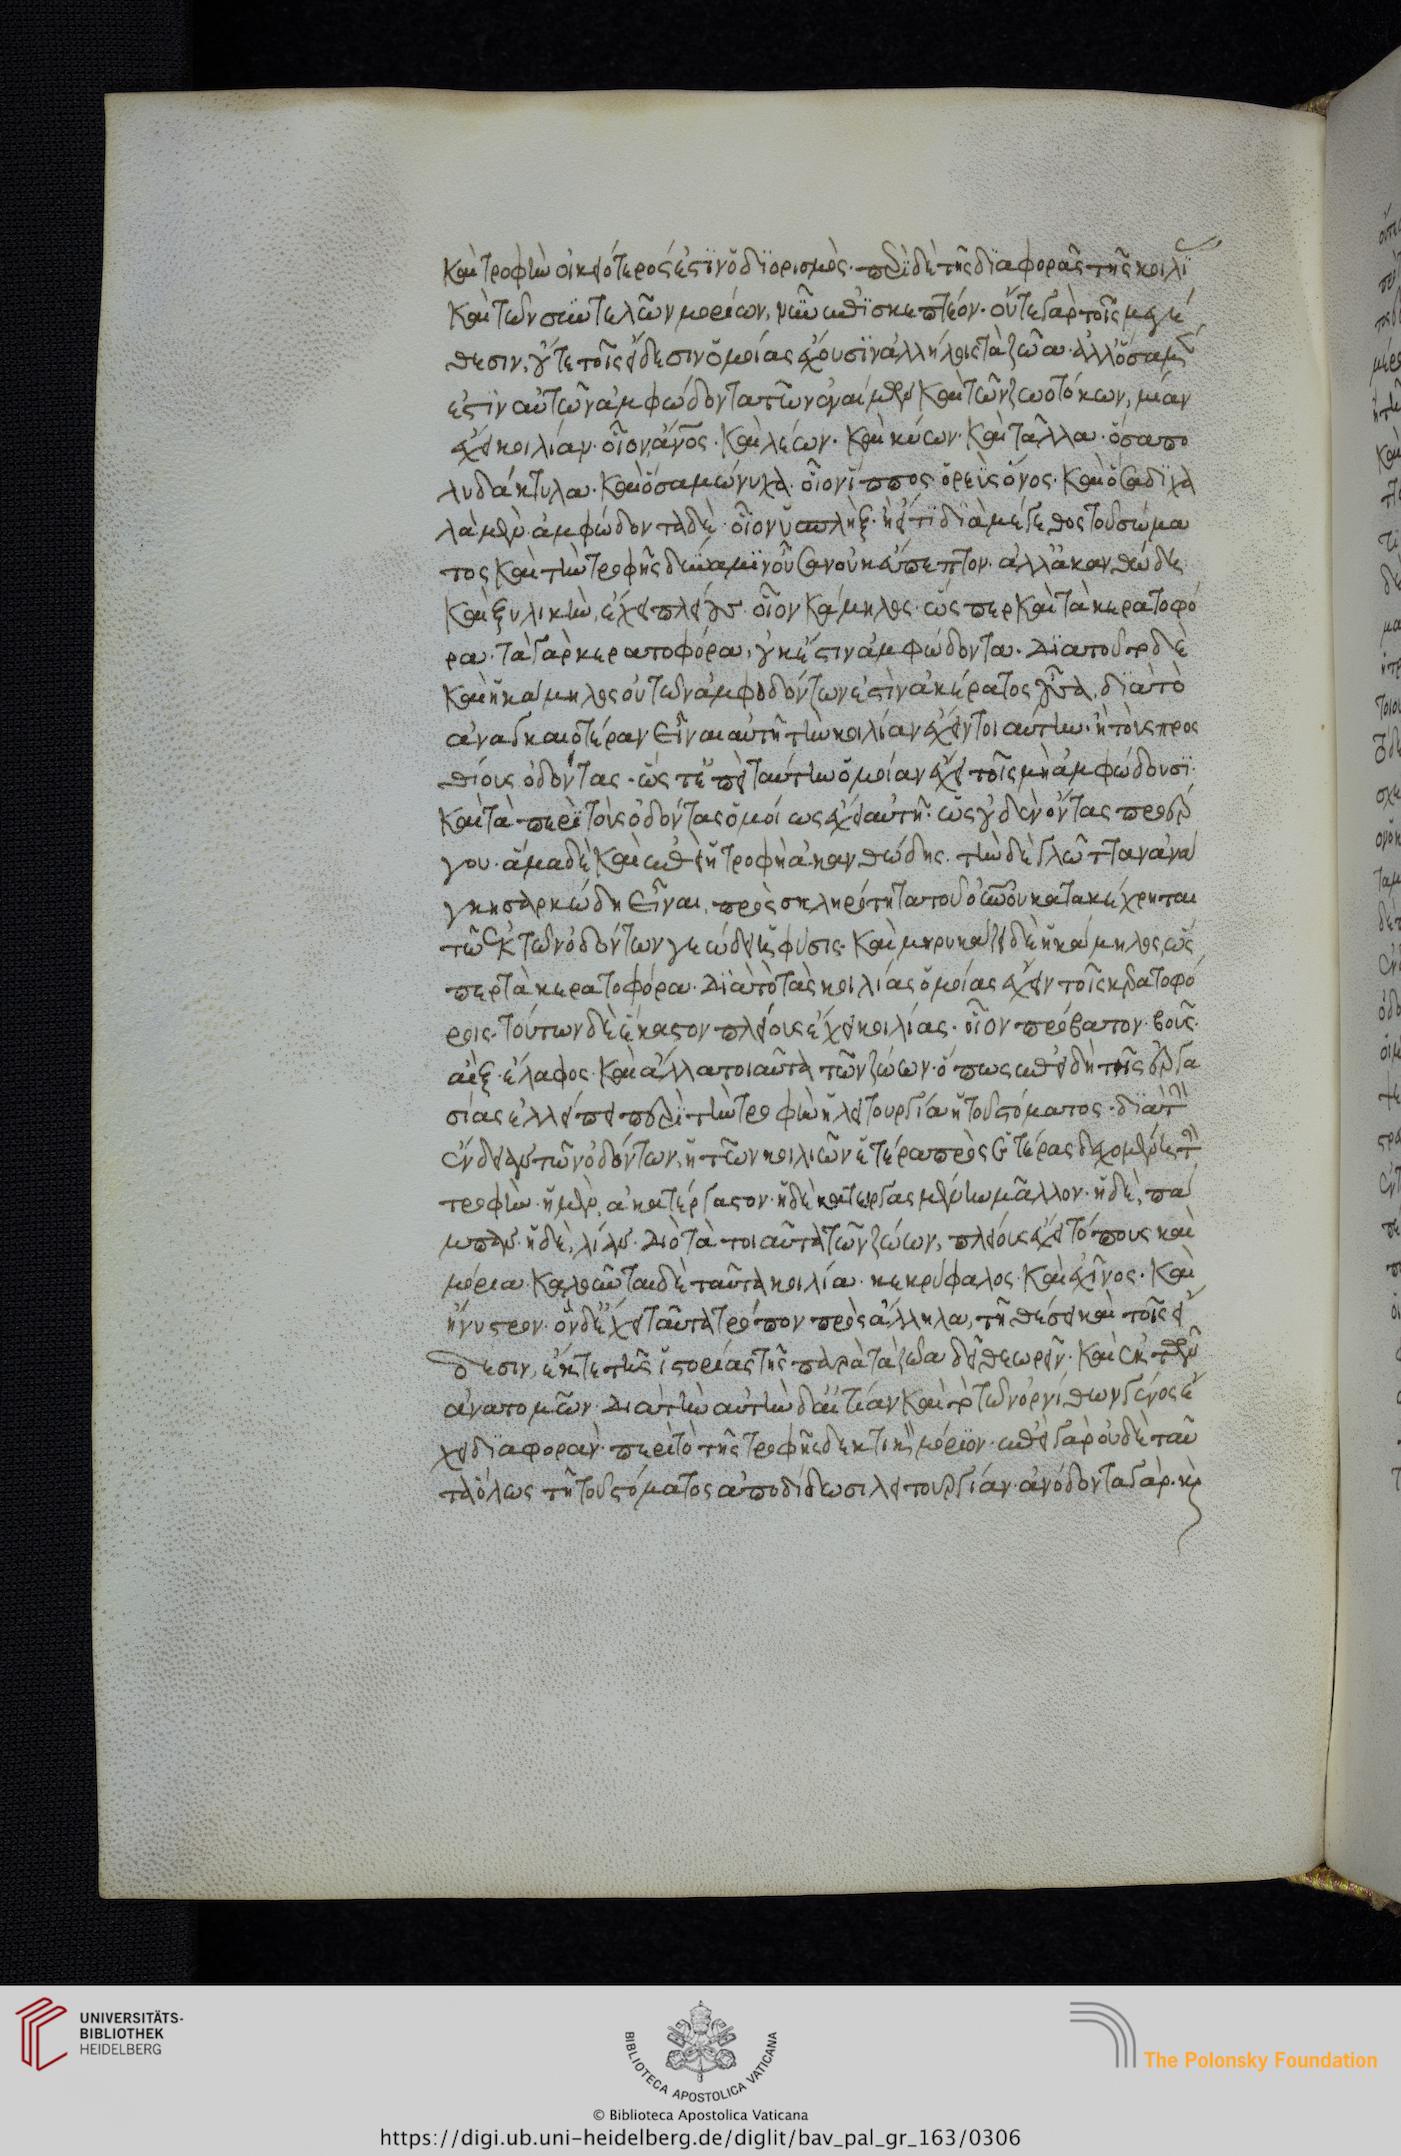 καὶ τροφὴν οἰκειότερός ἐστιν ὁ διορισμός· περὶ δὲ τῆς διαφορᾶς τῆς κοιλί
καὶ τῶν συντελῶν μορίων, νῦν ἐπισκεπτέον· οὔτε γὰρ τοῖς μεγέ
θεσιν, οὔτε τοῖς εἴδεσιν ὁμοίας ἔχουσιν ἀλλήλοις τὰ ζῶα· ἀλλ' ὅσα μέν
ἐστὶν αὐτῶν ἀμφώδοντα τῶν ἐναίμων καὶ τῶν ζωοτόκων, μίαν
ἔχει κοιλίαν· οἷον ἄνος· καὶ λέων· καὶ κύων· καὶ τἆλλα ὅσα πο
λυδάκτυλα· καὶ ὅσα μώνυχα· οἷον ἵππος· ὀρεὺς ὄνος· καὶ ὅσα διχα
λὰ μὲν ἀμφώδοντα δὲ· οἷον ὗς πλὴν εἴ τι διὰ μέγεθος τοῦ σώμα
τος καὶ τὴν τροφῆς δύναμιν οὖσαν οὐκ εὔπεπτον· ἀλλ' ἀκανθώδη
καὶ ξυλικὴν, ἔχει πλείους· οἷον κάμηλος· ὥσπερ καὶ τὰ κερατοφό
ρα· τὰ γὰρ κερατοφόρα, οὐκ ἔστιν ἀμφώδοντα· διὰ τοῦτο δὲ
καὶ ἡ κάμηλος οὐ τῶν ἀμφωδόντων ἐστὶν ἀκέρατος οὖσα, διὰ τὸ
ἀναγκαιότεραν εἶναι αὐτῆ τὴν κοιλίαν ἔχειν τοιαύτην· ἢ τοὺς προσ
θίους ὀδόντας· ὥστ' ἐπεὶ ταύτην ὁμοίαν ἔχει τοῖς μὴ ἀμφώδουσι·
καὶ τὰ περὶ τοὺς ὀδόντας ὁμοίως ἔχει αὐτῆ· ὡς οὐδὲν ὄντας προὔρ
γου· ἅμα δὲ καὶ ἐπεὶ ἡ τροφὴ ἀκανθώδης. τὴν δὲ γλῶτταν ἀνά
γκη σαρκώδη εἶναι, πρὸς σκληρότητα τοῦ οὐρανοῦ κατακέχρηται
τῶ ἐκ τῶν ὀδόντων γεώδει ἡ φύσις· καὶ μηρυκάζει δὲ ἡ κάμηλος, ὥσ
περ τὰ κερατοφόρα. διὰ τὸ τὰς κοιλίας ὁμοίας ἔχειν τοῖς κερατοφό
ροις· τούτων δὲ ἕκαστον πλείους ἔχει κοιλίας· οἷον πρόβατον· βοῦς·
αἲξ· ἔλαφος· καὶ ἄλλα τοιαῦτα τῶν ζώων· ὅπως ἐπειδὴ τῆς ἐργα
σίας ἐλλείπει περὶ τὴν τροφὴν ἡ λειτουργία ἡ τοῦ στόματος· διὰ τὴν
ἔνδειαν τῶν ὀδόντων, ἡ τῶν κοιλιῶν ἑτέρα πρὸς ἑτέρας δεχομένη τὴν
τροφὴν· ἡ μὲν, ἀκατέργαστον· ἡ δὲ κατειργασμένην μᾶλλον· ἡ δὲ, πά
μπαν· ἡ δὲ, λίαν· διὸ τὰ τοιαῦτα τῶν ζώων, πλείους ἔχει τόπους καὶ
μόρια· καλοῦνται δὲ ταῦτα κοιλία· κεκρύφαλος· καὶ ἐχῖνος· καὶ
ἤνυστρον· ὃν δὲ ἔχει ταῦτα τρόπον πρὸς ἄλληλα, τῆ θέσει καὶ τοῖς εἴ
δεσιν, ἔκ τε τῆς ἱστορίας τῆς παρὰ τὰ ζῶα δεῖ θεωρεῖν· καὶ ἐκ τῶν
ἀνατομῶν· διὰ τὴν αὐτὴν δ' αἰτίαν καὶ τὸ τῶν ὀρνίθων γένος ἔ
χει διαφορὰν· περὶ τὸ τῆς τροφῆς δεκτικὸν μόριον· ἐπεὶ γὰρ οὐδὲ ταῦ
τα ὅλως τὴν τοῦ στόματος ἀποδίδωσι λειτουργίαν· ἀνόδοντα γάρ· καὶ
UNIVERSITÄTS-
BIBLIOTHEK
HEIDELBERG
BIBLIOTECA APOSTOLICA VATICANA
The Polonsky Foundation
© Biblioteca Apostolica Vaticana
https://digi.ub.uni-heidelberg.de/diglit/bav_pal_gr_163/0306